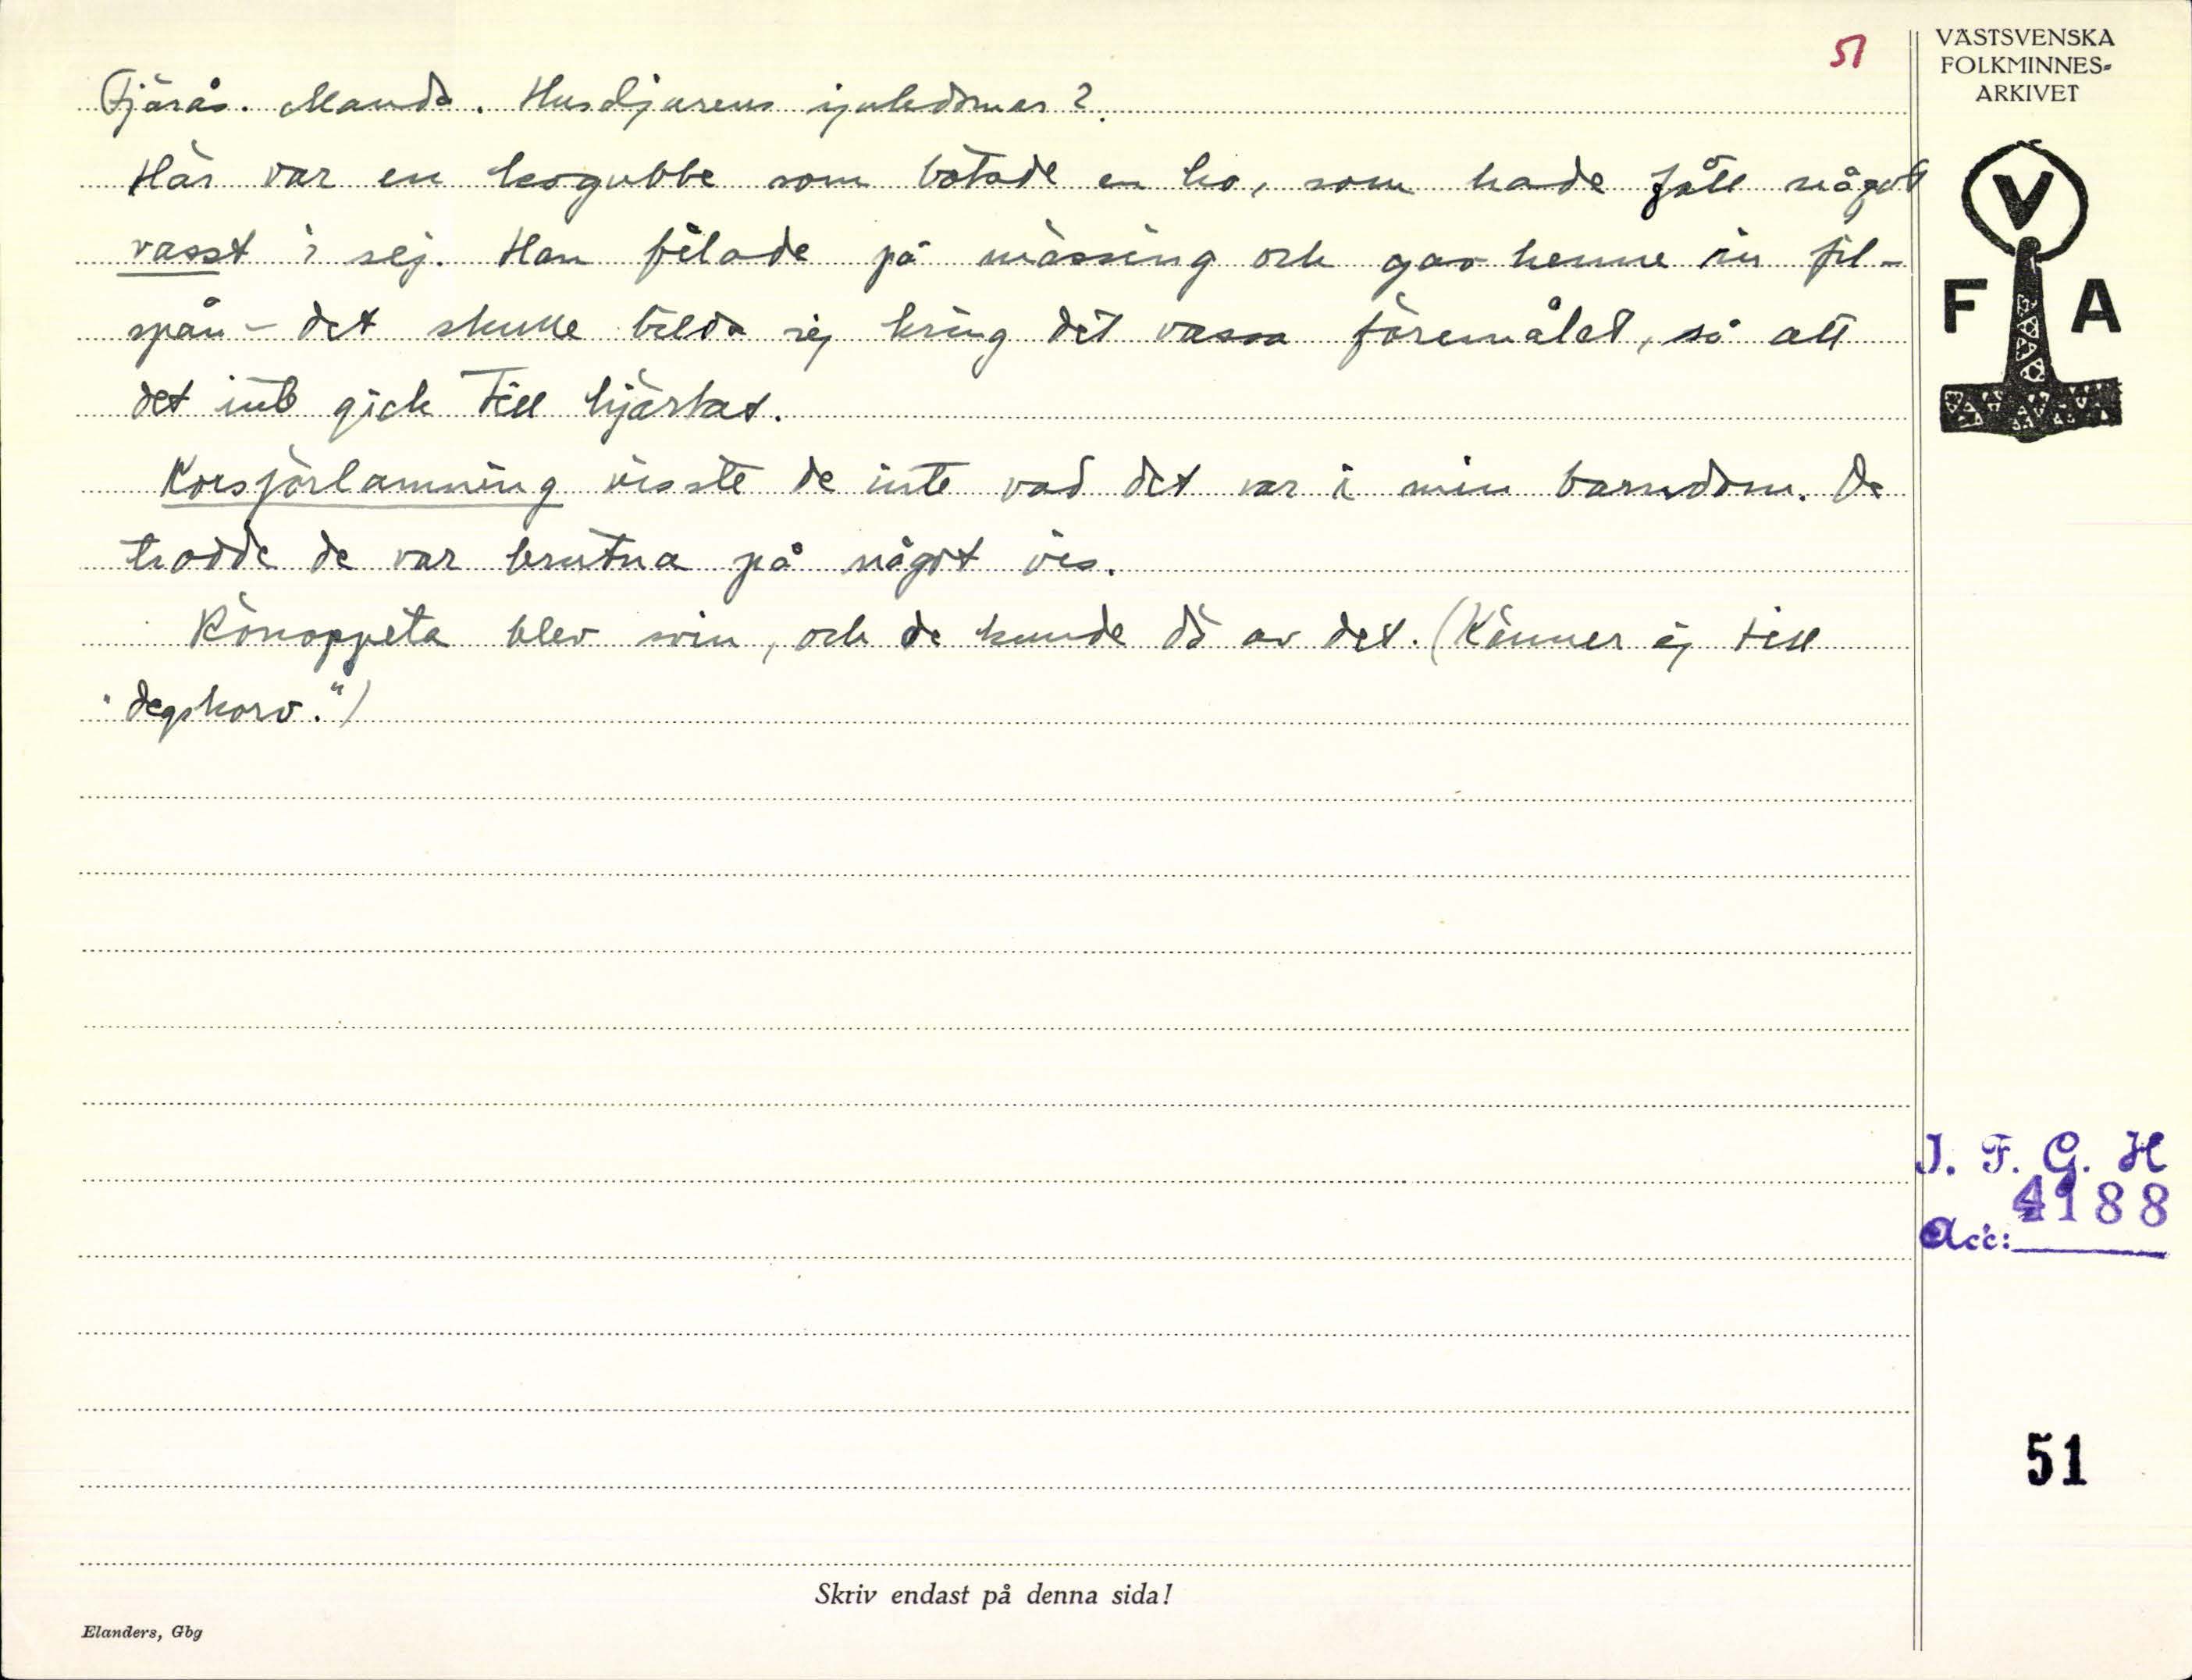 51
VÄSTSVENSKA
FOLKMINNES-
ARKIVET
Fjärås. Manda. Husdjurens sjukdomar?
Här var en kogubbe som botade en ko, som hade fått något
vasst i sej. Han filade på mässing och gav henne in fil-
spån – det skulle bilda sej kring det vassa föremålet, så att
det inte gick till hjärtat.
Korsförlamning visste de inte vad det var i min barndom. De
trodde de var brutna på något vis.
blev svin, och de kunde dö av det. (Känner ej till
"degskorv.")
V
F A
I. F. G. H
4188
Acc:
51
Skriv endast på denna sida!
Elanders, Gbg